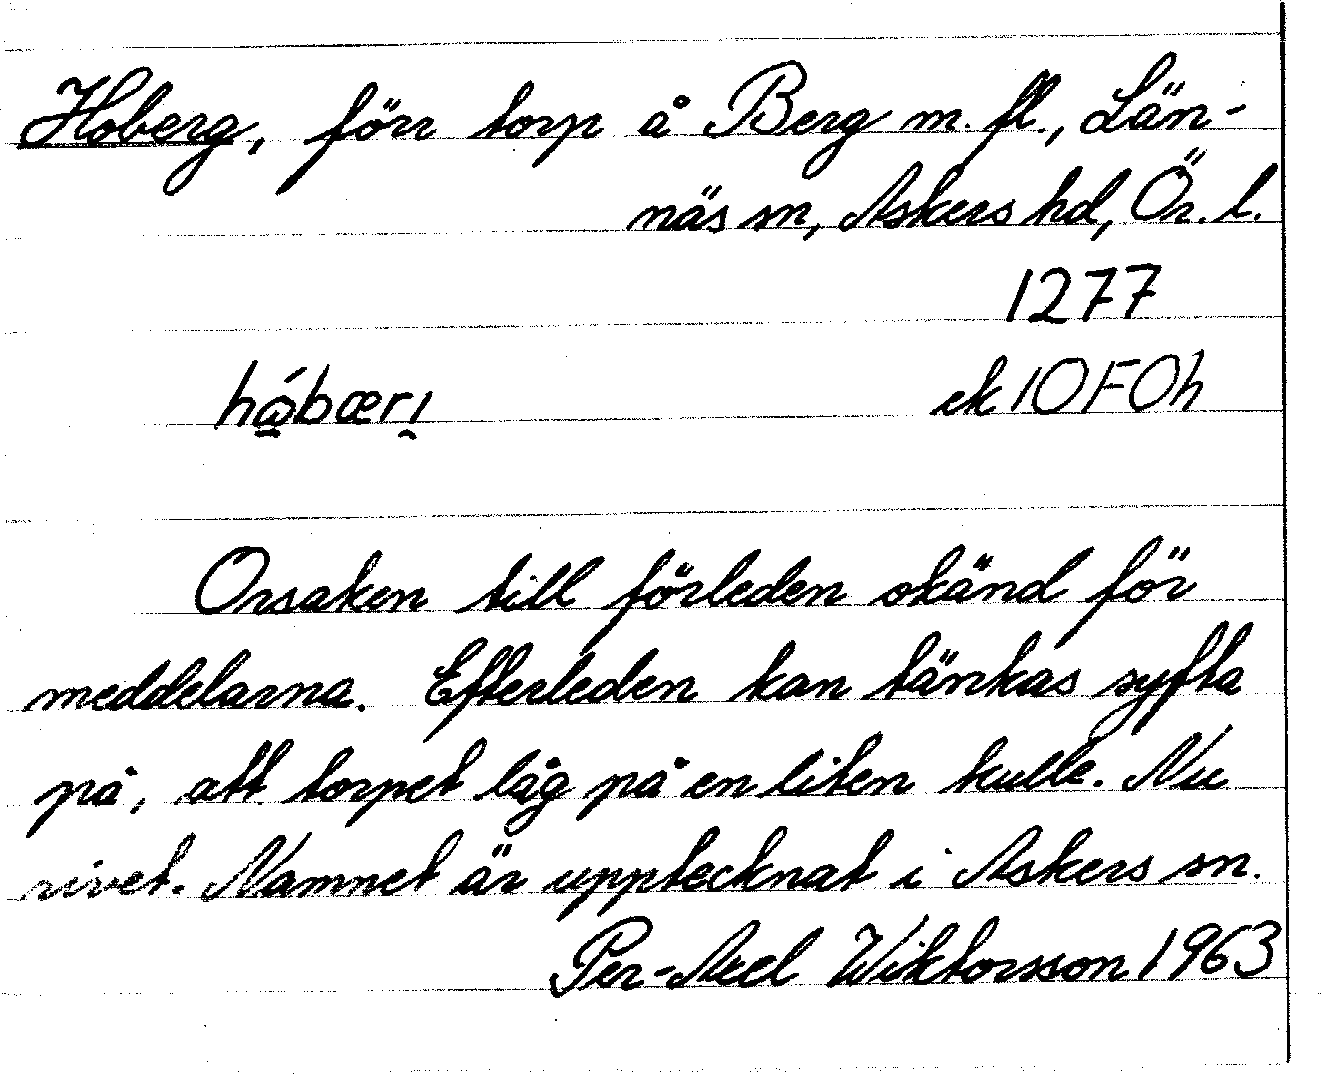 Hoberg, förr torp å Berg m. fl., Län-
näs sn, Askers hd, Ör. l.
1277
hǻbærı̣ ek 10F0h
Orsaken till förleden okänd för
meddelarna. Efterleden kan tänkas syfta
på, att torpet låg på en liten kulle. Nu
rivet. Namnet är upptecknat i Askers sn.
Per-Axel Wiktorsson 1963